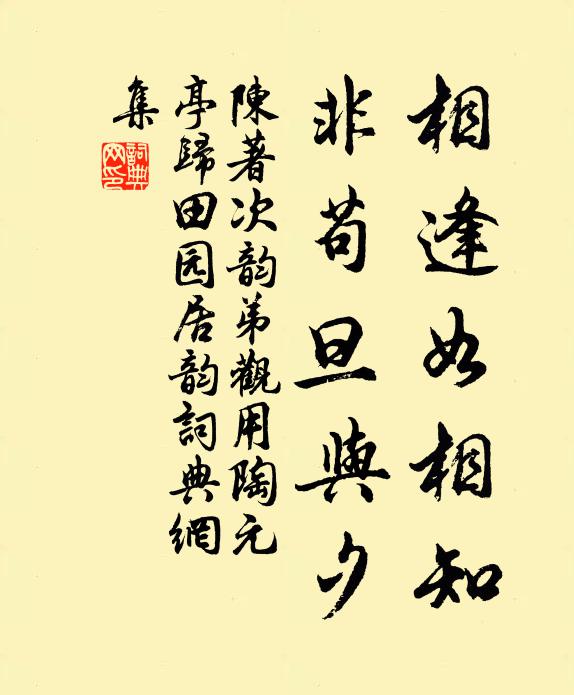 相逢如相知
非苟旦與夕
陳著次韵弟觀用陶元
亭歸田园居韵詞典網
集
詞典
网印